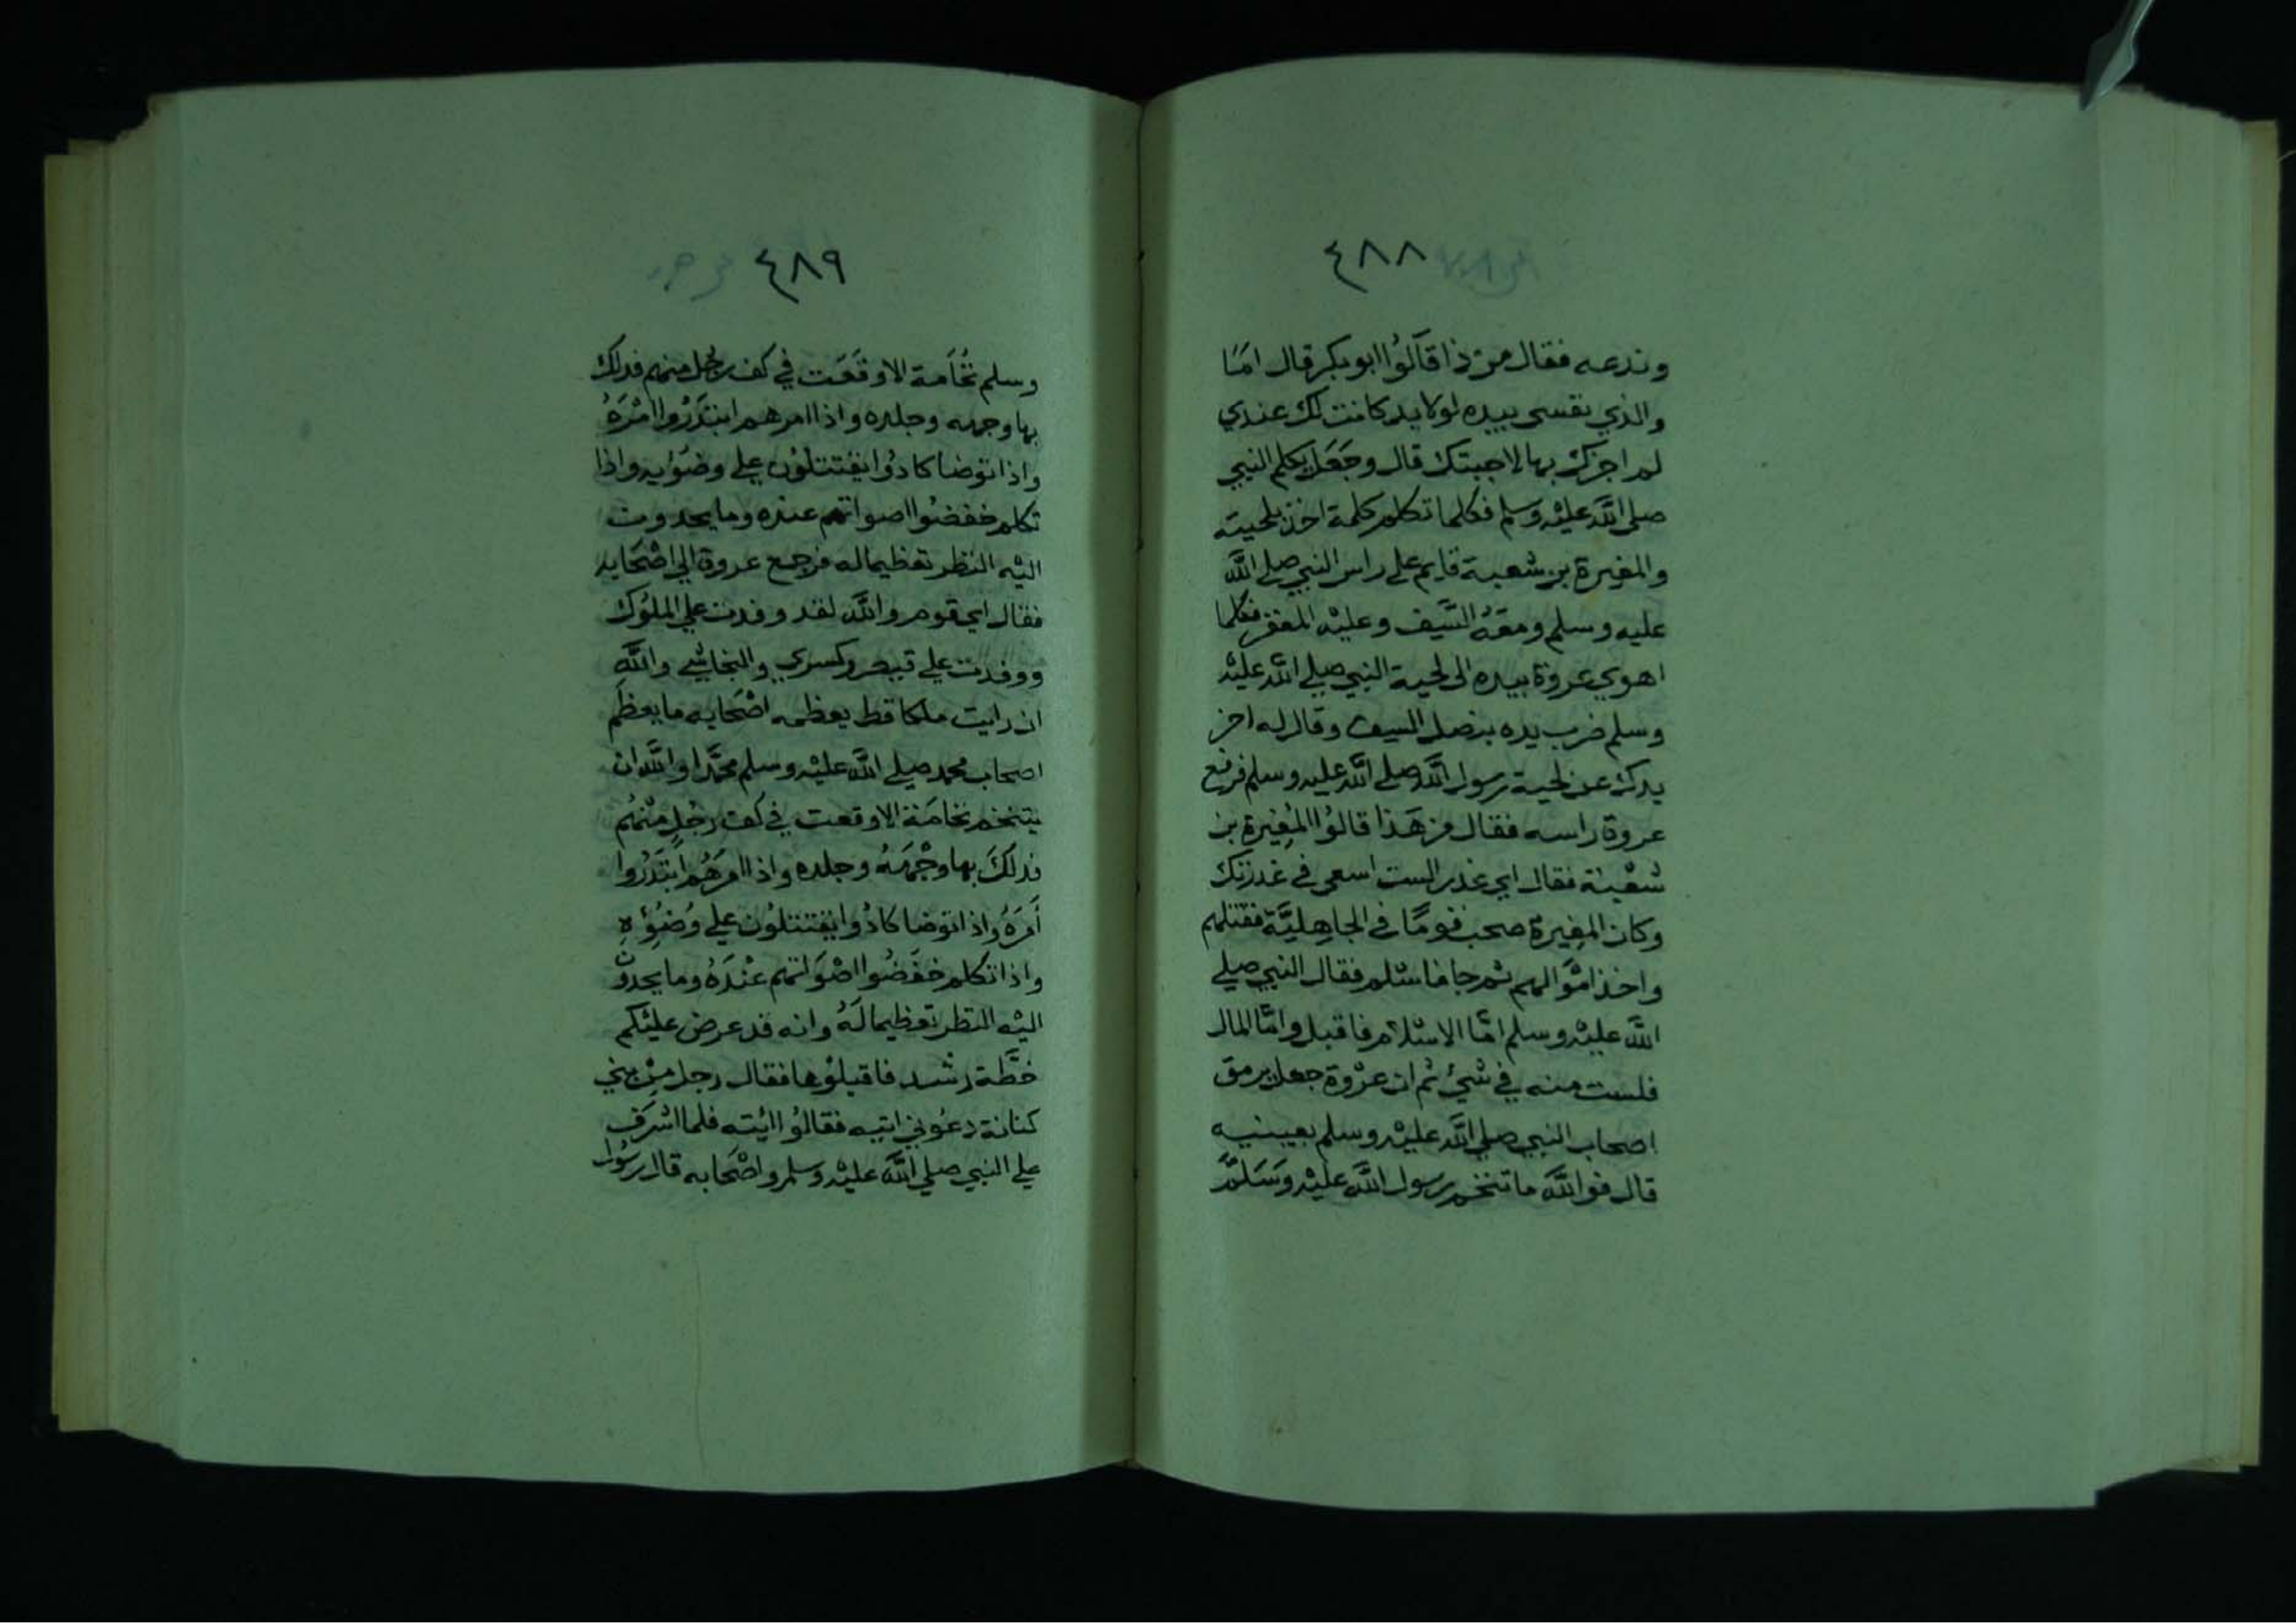 ٤٨٨
وندعه فقال من ذا قالوُا ابو بكر قال امَا
والذي نفسى بيده لولا يد كانت لك عندي
لم اجزك بها لاجبتك قال وجَعَل يكلم النبي
صلى اللّه عليْه وسلم فكلما تكلم كلمة اخذ بلحيته
والمغيرة بن شعبة قايم على راس النبي صلى اللّه
عليه وسلم ومعَهُ السَّيف وعليْه المغفر فكلما
اهوي عروة بيده الى لحية النبي صلي اللّه عليْه
وسلم ضرب يده بنصل السيف وقال له اخر
يدك عن لحية رسول اللّه صلى اللّه عليه وسلم فرفع
عروة راسه فقال من هَذا قالوُا المُغِيرة بن
شعْبة فقال اي غدر الست اسعى في غدرتك
وكان المغِيرة صحب قومًا في الجاهِليَّة فقتلهم
واخذ امْوالهم ثم جا فاسْلم فقال النبي صلي
اللّه عليْه وسلم امَّا الاسْلام فاقبل وامَّا المال
فلست منه في شيْ ثم ان عرْوة جعل يرمق
اصحاب النبي صلي اللّه عليْه وسلم بعينيه
قال فواللّه ما تنخم رسول اللّه عليْه وَسَلمَّ
٤٨٩
وسلم نُخَامة الا وقَعَت في كف رجُل منهم فدلك
بها وجهه وجلده واذا امرهم ابتَدَرُوا امْرَهُ
واذا توضا كادُوا يقتتلوُن علي وضوُايه واذا
تكلم خفضُوا اصواتهم عنده وما يحدون
اليْه النظر تعظيما له فرجع عروة الي اصْحَابه
فقال اي قوم واللّه لقد وفدت علي الملوُك
ووفدت علي قيصر وكسري والنجاشي واللّه
ان رايت ملكا قط يعظمه اصْحَابه ما يعظم
اصحاب محمد صلي اللّه عليْه وسلم محمَّدا واللّه ان
يتنخم نخامَة الا وقعت في كف رجُل منْهُم
فدلكَ بها وجْهَهُ وجلده واذا امرَهُم ابْتَدَرُوا
أمرَهُ واذا توضا كادُوا يقتتلوُن علي وُضوُؤهِ
واذا تكلم خفَضُوا اصْوَاتهم عنْدَهُ وما يحدوُن
اليْه النظر تعظيما لَهُ وانه قد عرض عليْكم
خطَّة رشد فاقبلوُها فقال رجل منْ بني
كنانة دعوُني اتيه فقالوُا ائته فلما اشْرَف
علي النبي صلي اللّه عليْه وسلم واصْحَابه قال رسُول